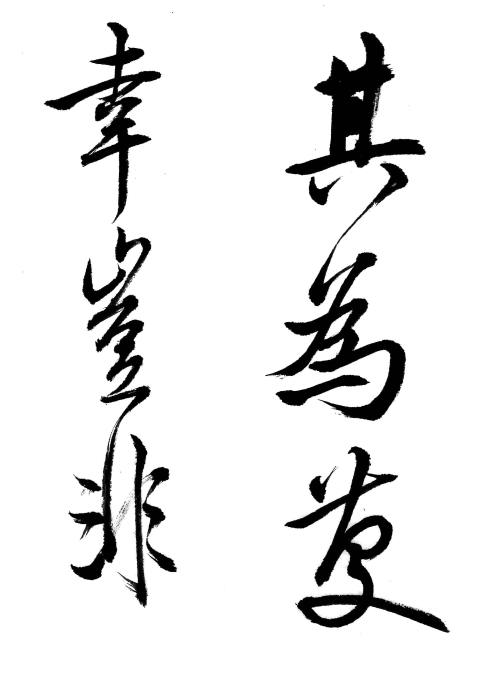 其為慶
幸豈非